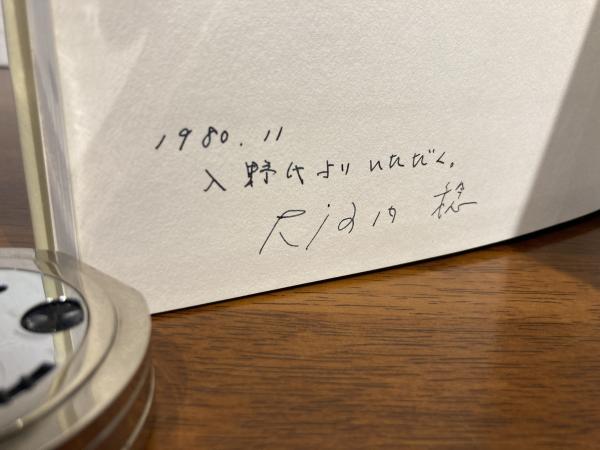 1980.11
入野氏よりいただく。